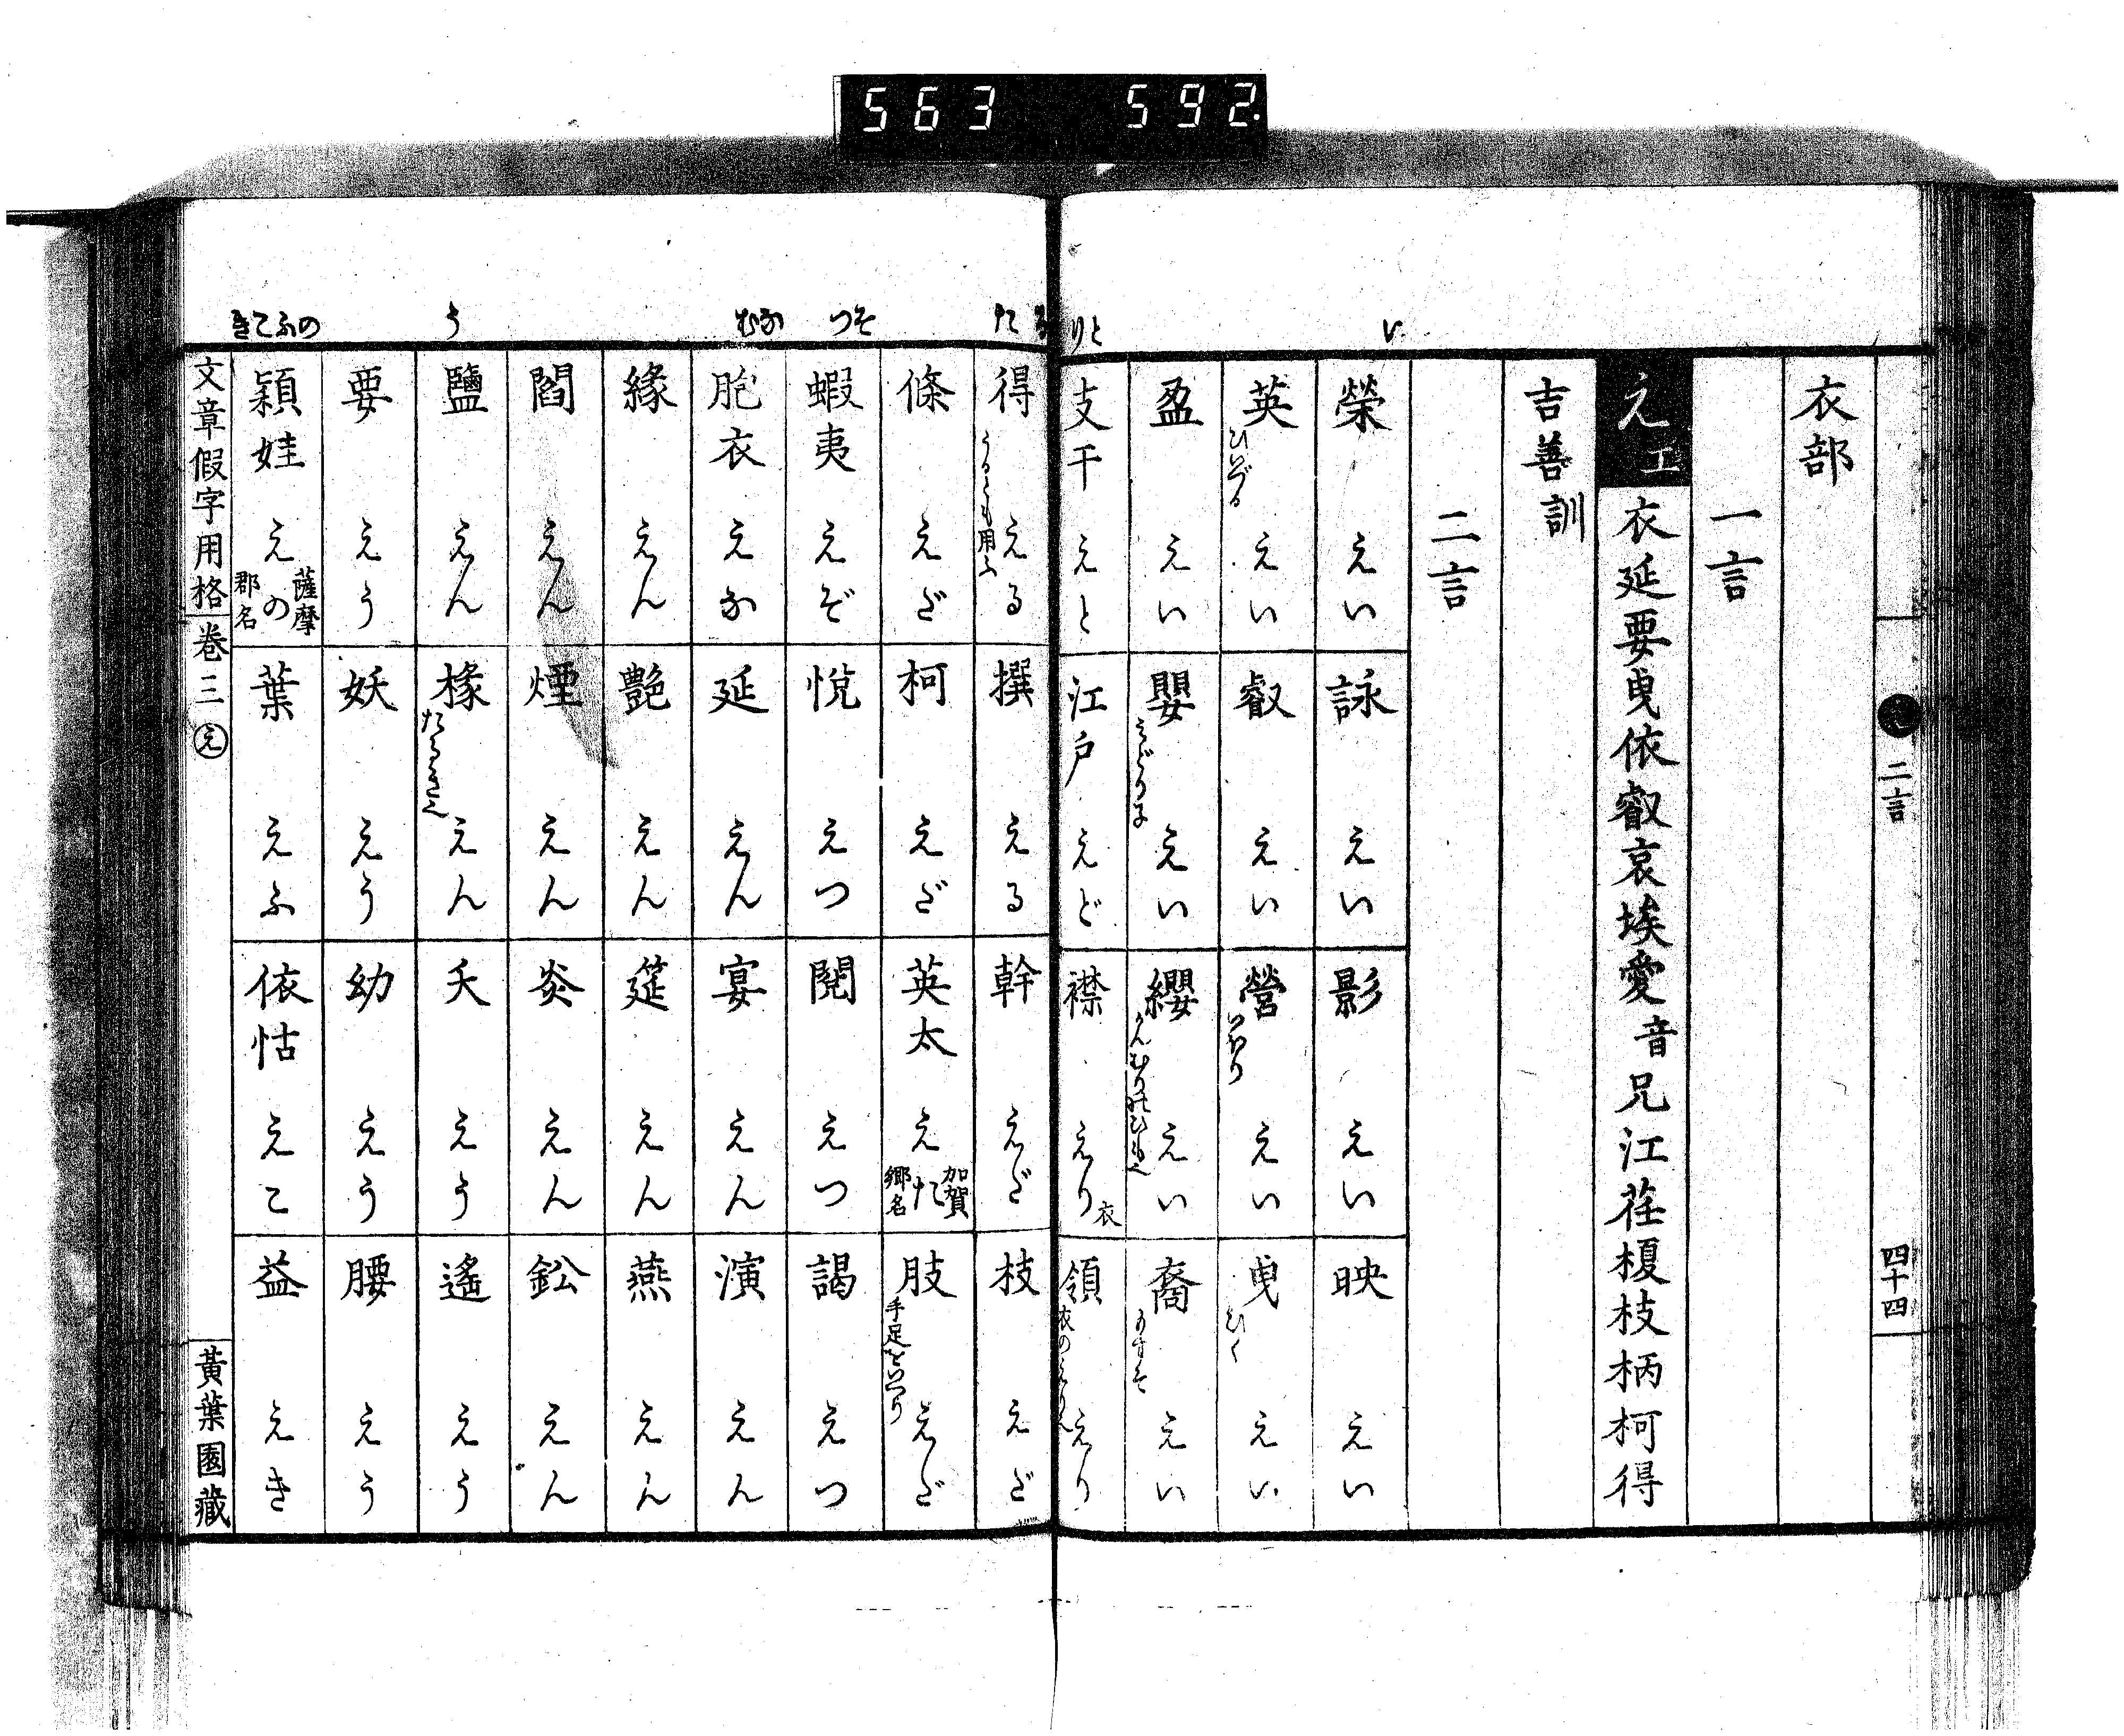 563 592.
い
とり
二言
四十四
衣部
一言
え エ 衣延要曳依叡哀埃愛音兄江荏榎枝柄柯得
吉善訓
二言
榮 えい 詠 えい 影 えい 映 えい
英 ひいづる えい 叡 えい 營 えい 曳 ひく えい
盈 えい 嬰 みどりこ えい 纓 かんむりのひも也 えい 裔 えい
支干 えと 江戸 えど 襟 えり 衣 領 えり
るた
そつ
なむ
う
のふこき
得 うるとも用ふ える 撰 える 幹 えだ 枝 えだ
條 えだ 柯 えだ 英太 えた 加賀郷名 肢 手足をいへり えだ
蝦夷 えぞ 悅 えつ 閱 えつ 謁 えつ
胞衣 えな 延 えん 宴 えん 演 えん
緣 えん 艷 えん 筵 えん 燕 えん
閻 えん 煙 えん 炎 えん 鈆 えん
鹽 えん 椽 たるき也 えん 夭 えう 遙 えう
要 えう 妖 えう 幼 えう 腰 えう
穎娃 えの 薩摩郡名 葉 えふ 依怙 えこ 益 えき
文章假字用格 卷三 え 黃葉園藏